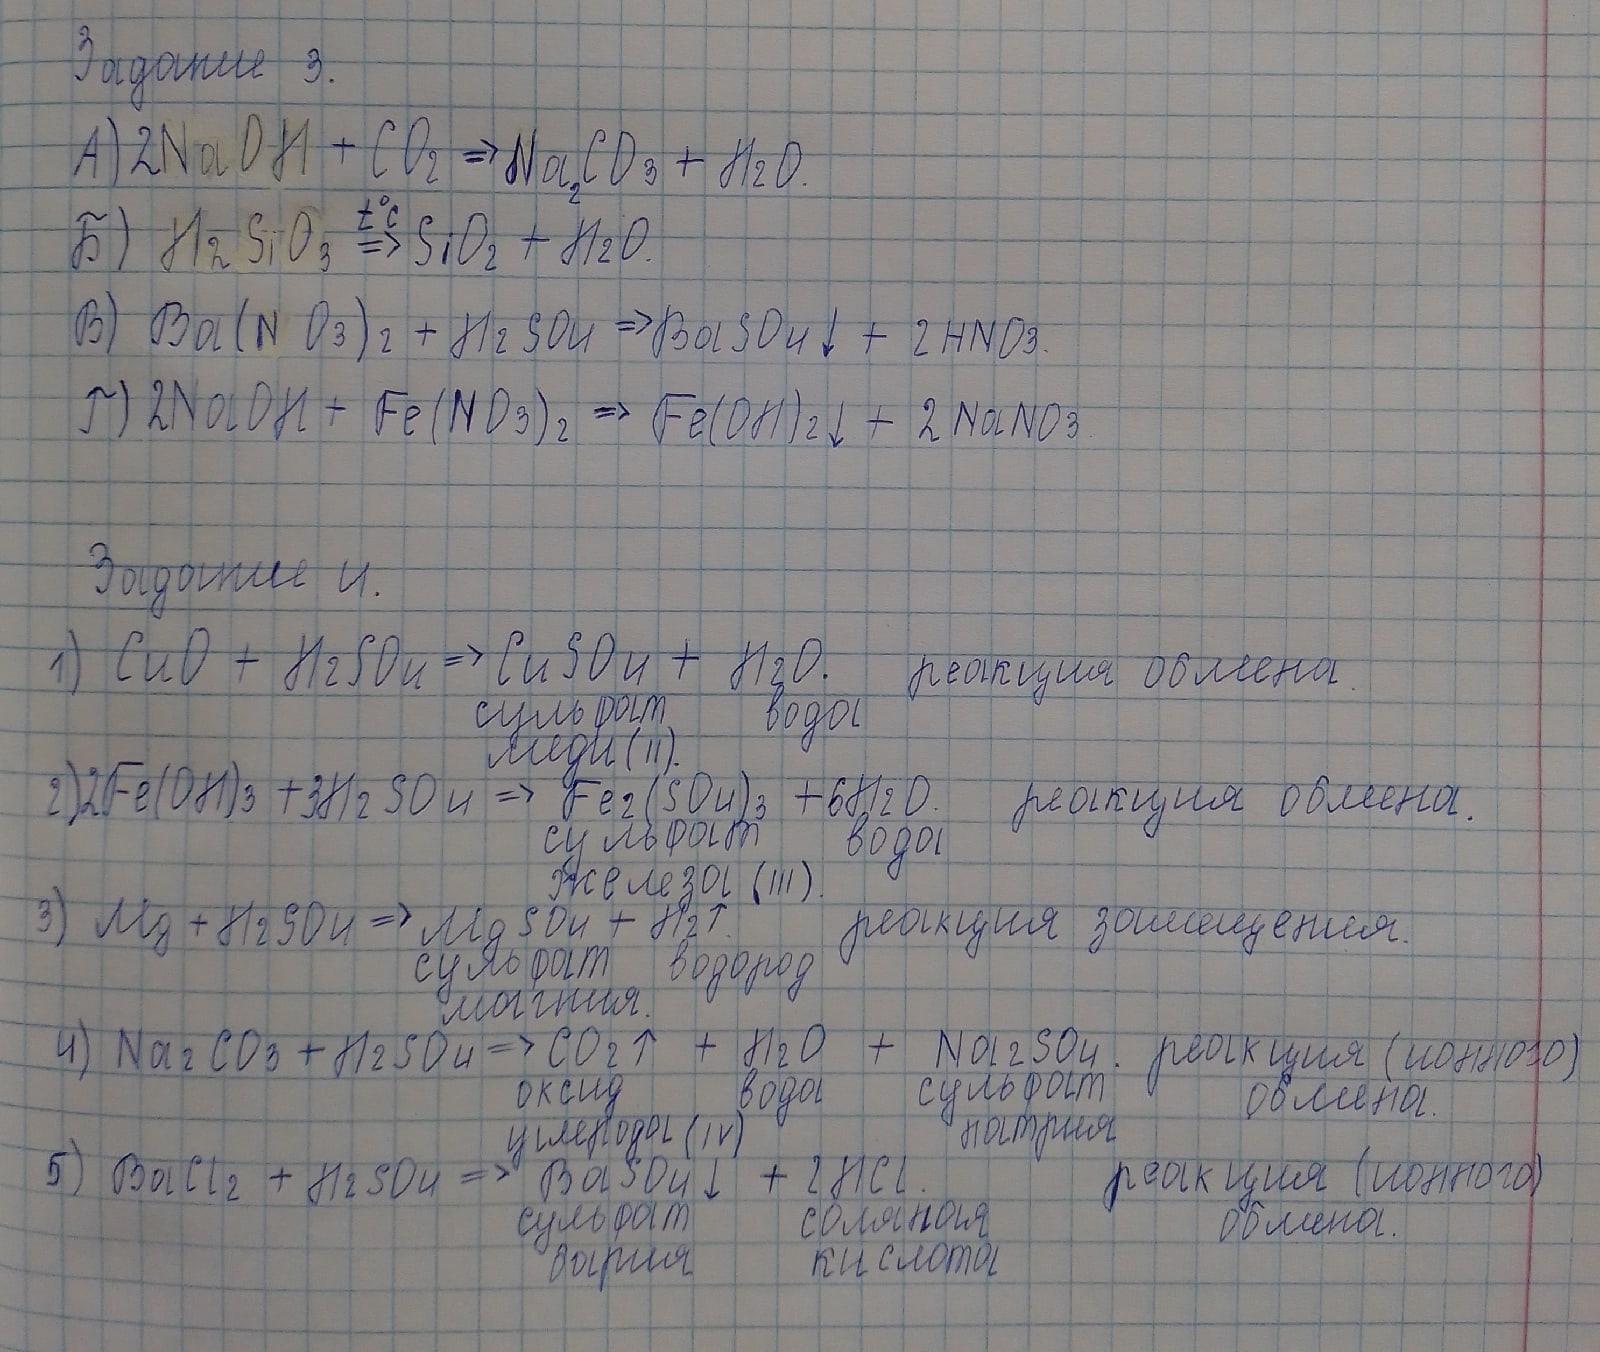 Задание 3.
А) 2NaOH + CO2 => Na2CO3 + H2O.
Б) H2SiO3 t°C => SiO2 + H2O.
В) Ba(NO3)2 + H2SO4 => BaSO4↓ + 2HNO3.
Г) 2NaOH + Fe(NO3)2 => Fe(OH)2↓ + 2NaNO3.
Задание 4.
1) CuO + H2SO4 => CuSO4 + H2O. реакция обмена.
сульфат вода
меди (II).
2) 2Fe(OH)3 + 3H2SO4 => Fe2(SO4)3 + 6H2O. реакция обмена.
сульфат вода
железа (III).
3) Mg + H2SO4 => MgSO4 + H2↑. реакция замещения.
сульфат водород
магния.
4) Na2CO3 + H2SO4 => CO2↑ + H2O + Na2SO4. реакция (ионного)
оксид вода сульфат обмена.
углерода (IV) натрия
5) BaCl2 + H2SO4 => BaSO4↓ + 2HCl. реакция (ионного)
сульфат соляная обмена.
бария кислота